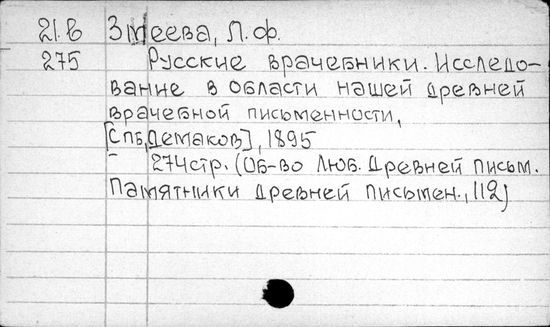 21.в Змеева, Л.Ф.
275 Русские врачебники. Исследо-
вание в области нашей древней
врачебной письменности,
[Спб, Демаков], 1895
274 стр. (Об-во люб. Древней письм.
Памятники древней письмен., 112)